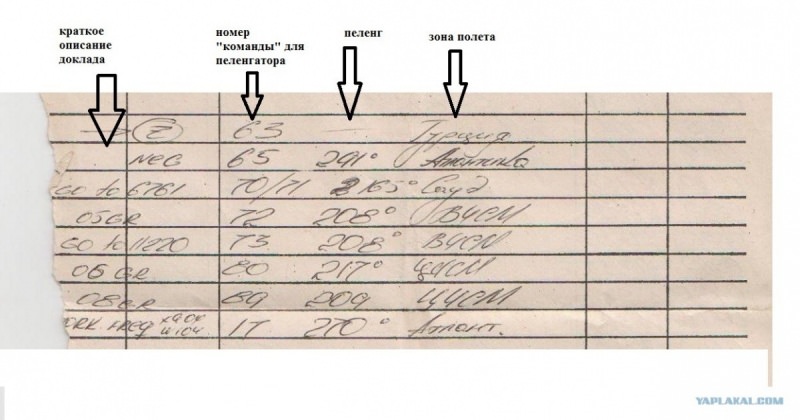 краткое описание доклада
номер "команды" для пеленгатора
пеленг
зона полета
→ Z 63 — Турция
NEG 65 291° Атлантика
GO to 6761 70/71 165° Сауд
05GR 72 208° ВЧСМ
GO to 11220 73 208° ВЧСМ
06 GR 80 217° ЦЧСМ
08GR 89 209 ЦЧСМ
FREQ 17 270° Атлант.
YAPLAKAL.COM